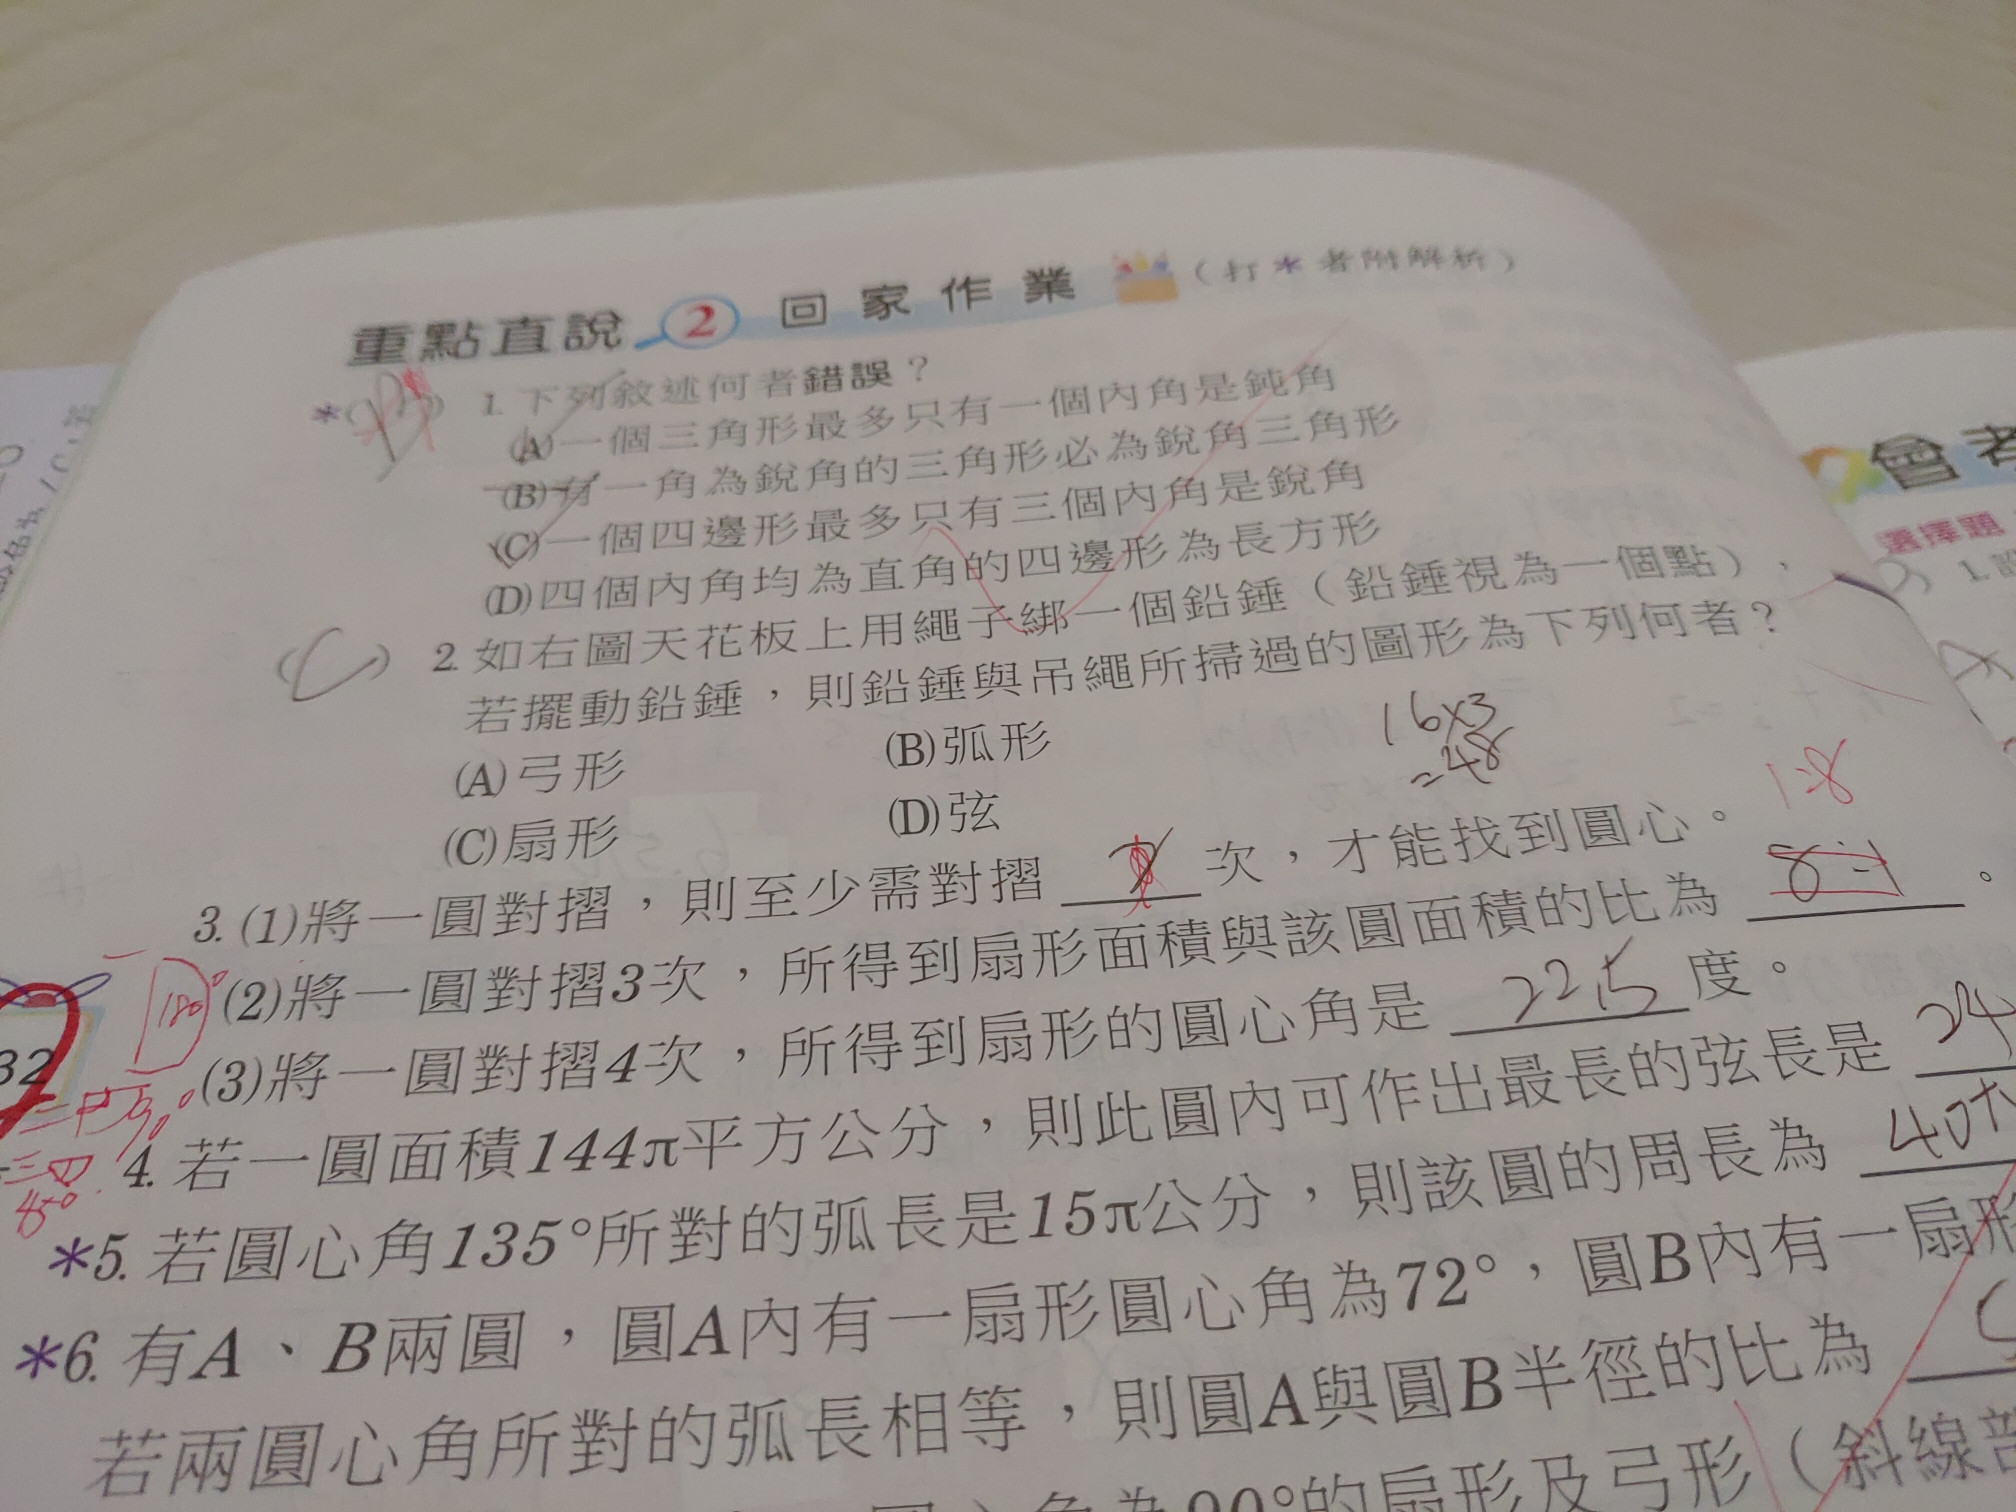 重點直說 2 回家作業 (打*者附解析)
* 1. 下列敘述何者錯誤?
(A)一個三角形最多只有一個內角是鈍角
(B)有一角為銳角的三角形必為銳角三角形
(C)一個四邊形最多只有三個內角是銳角
(D)四個內角均為直角的四邊形為長方形
(C) 2. 如右圖天花板上用繩子綁一個鉛錘(鉛錘視為一個點),
若擺動鉛錘,則鉛錘與吊繩所掃過的圖形為下列何者?
(A)弓形 (B)弧形
(C)扇形 (D)弦
16×3
=48
3. (1)將一圓對摺,則至少需對摺 次,才能找到圓心。
1:8
(2)將一圓對摺3次,所得到扇形面積與該圓面積的比為 8:1 。
(3)將一圓對摺4次,所得到扇形的圓心角是 22.5 度。
180°
90°
45°
32
4. 若一圓面積144π平方公分,則此圓內可作出最長的弦長是 24
*5. 若圓心角135°所對的弧長是15π公分,則該圓的周長為 40π
*6. 有A、B兩圓,圓A內有一扇形圓心角為72°,圓B內有一扇形
若兩圓心角所對的弧長相等,則圓A與圓B半徑的比為
90°的扇形及弓形(斜線部
會考
選擇題
1.